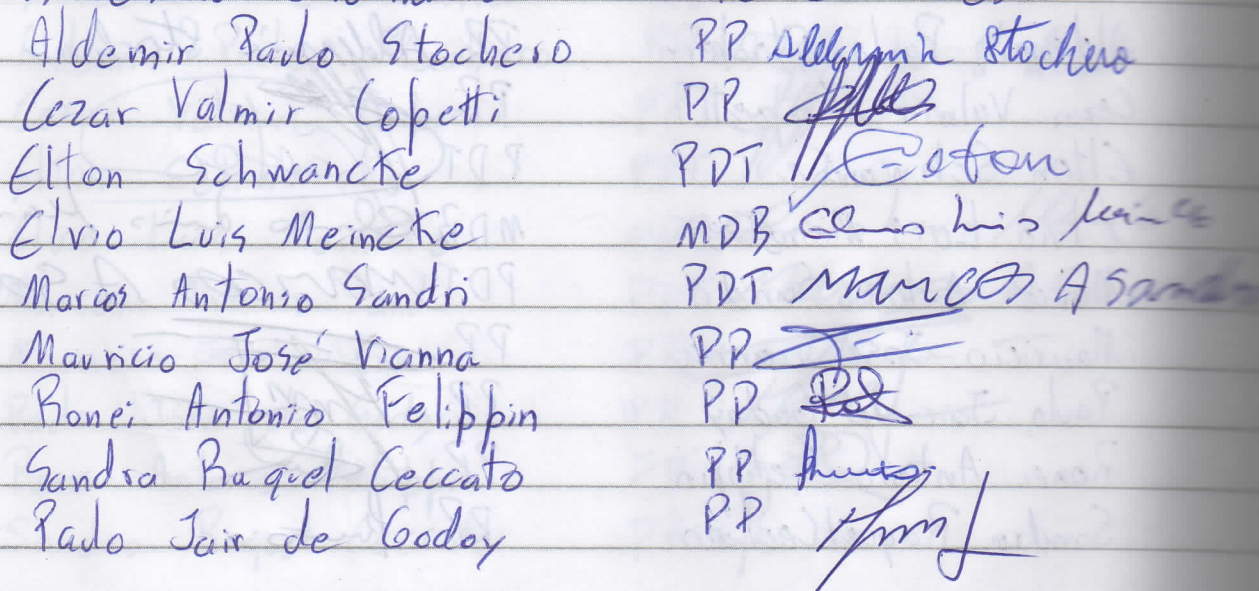 Aldemir Paulo Stochero PP Aldemir Stochero
Cezar Valmir Copetti PP
Elton Schwancke PDT Elton
Elvio Luis Meincke MDB Elvio Luis Meincke
Marcos Antonio Sandri PDT Marcos A Sandri
Mauricio José Vianna PP
Ronei Antonio Felippin PP
Sandra Raquel Ceccato PP
Paulo Jair de Godoy PP